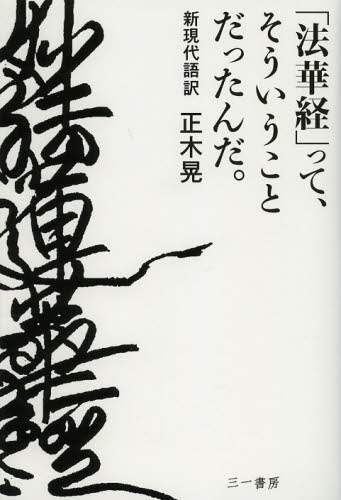 「法華経」って、
そういうこと
だったんだ。
新現代語訳
正木晃
妙法蓮華経
三一書房